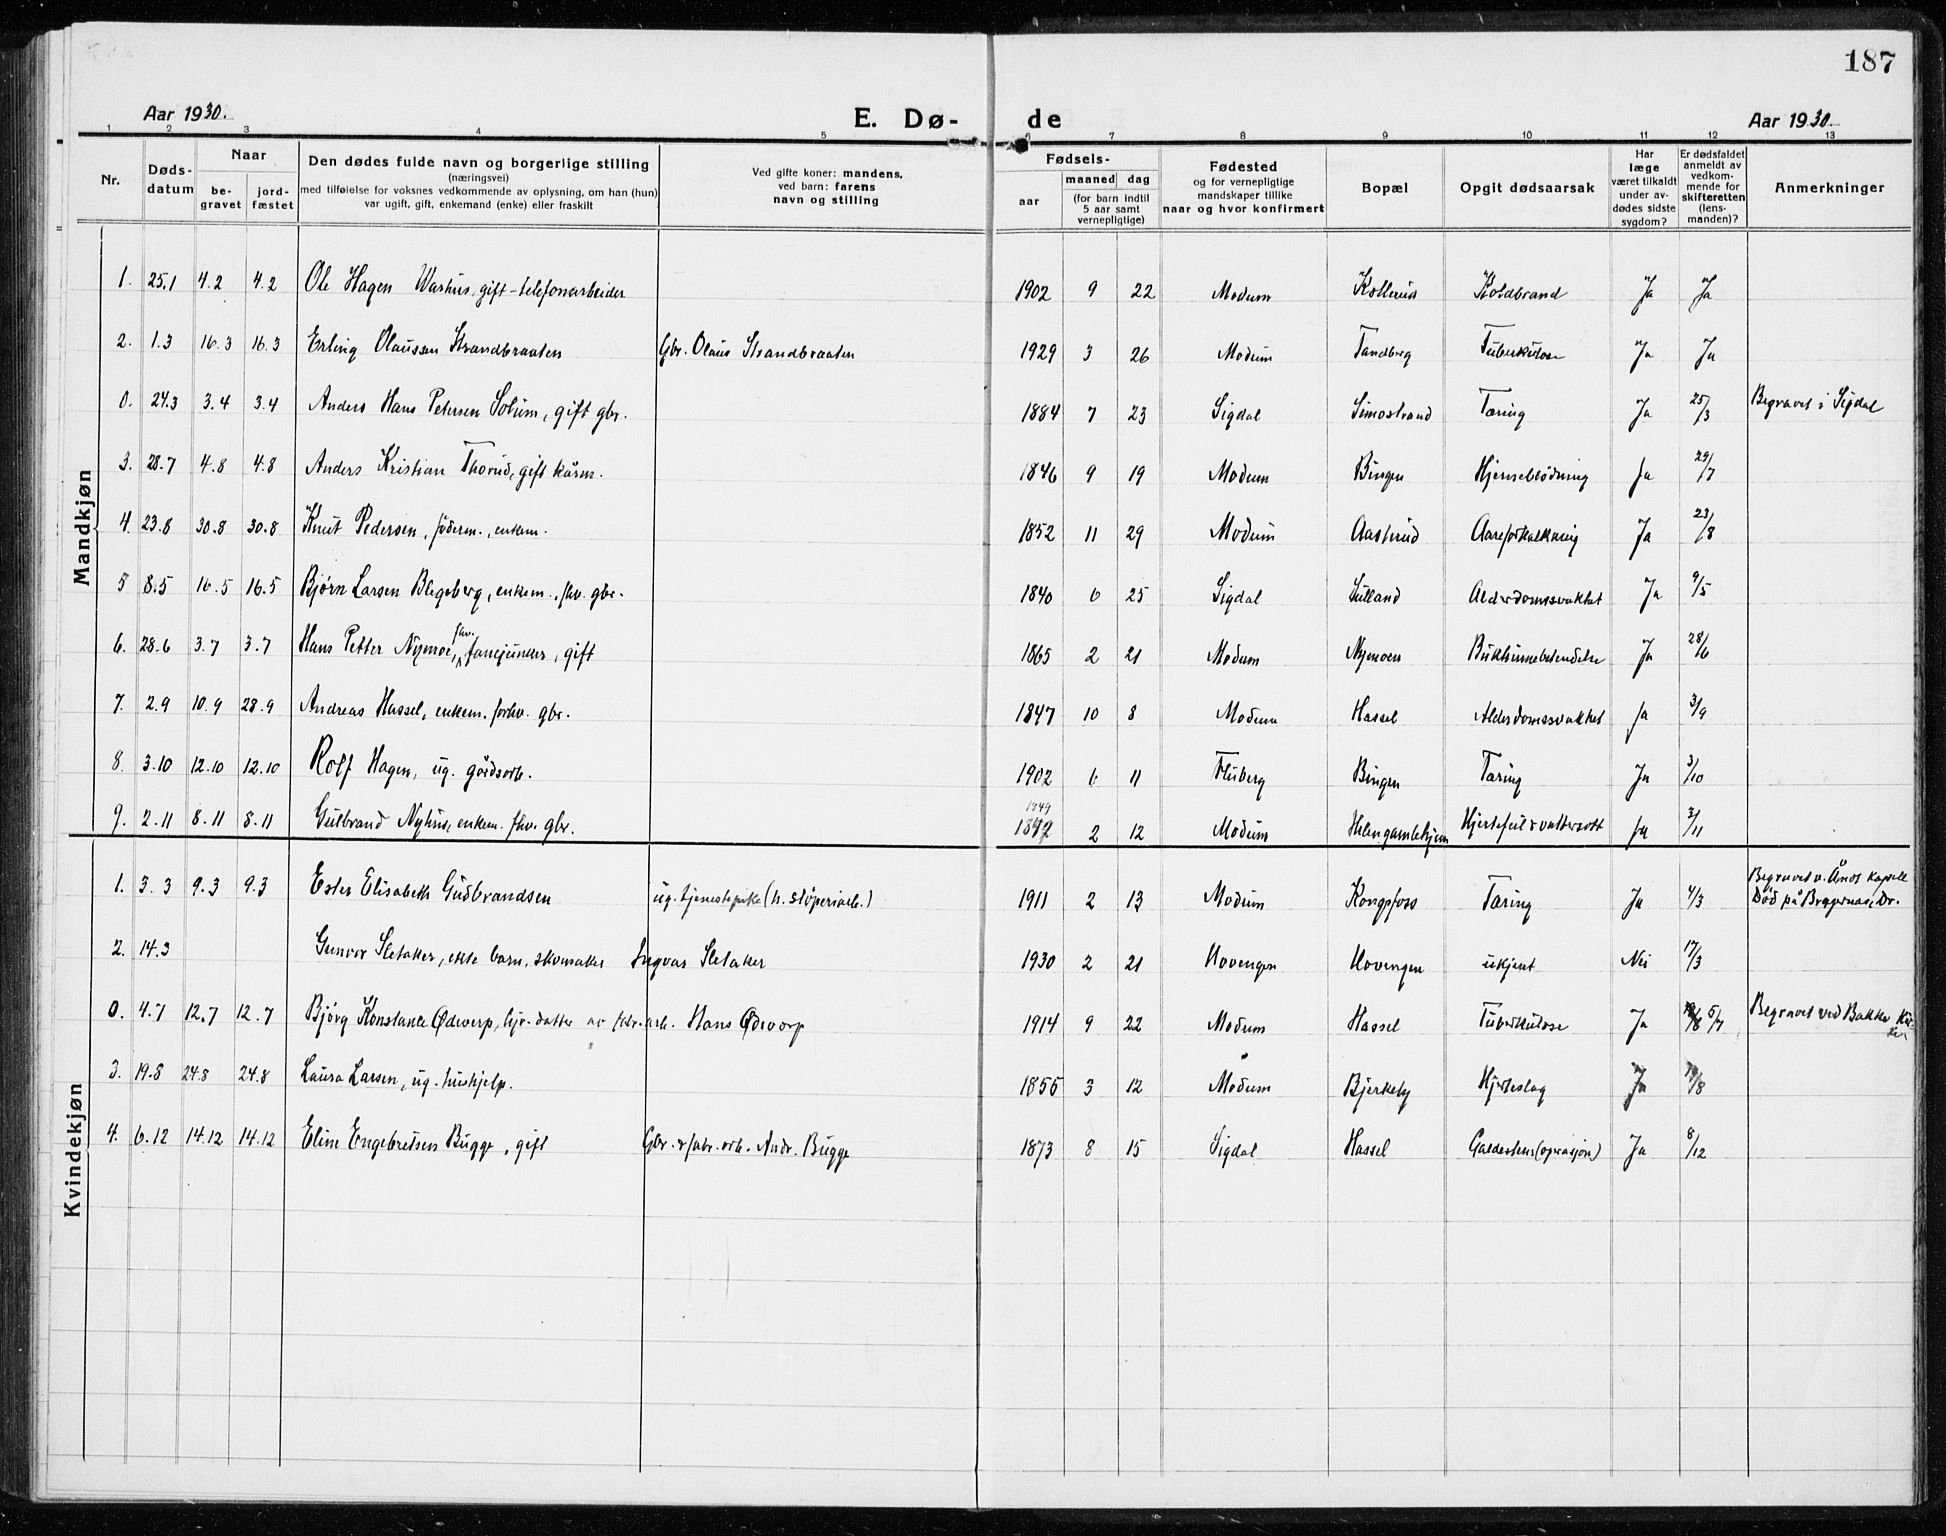 187
Aar 1930.
E. Dø-
de
Aar 1930.
1 2 3 4 5 6 7 8 9 10 11 12 13
Nr.
Døds-
datum
Naar
be-
gravet
jord-
fæstet
Den dødes fulde navn og borgerlige stilling
(næringsvei)
med tilføielse for voksnes vedkommende av oplysning, om han (hun)
var ugift, gift, enkemand (enke) eller fraskilt
Ved gifte koner: mandens,
ved barn: farens
navn og stilling
Fødsels-
aar
maaned dag
(for barn indtil
5 aar samt
vernepligtige)
Fødested
og for vernepligtige
mandskaper tillike
naar og hvor konfirmert
Bopæl
Opgit dødsaarsak
Har
læge
været tilkaldt
under av-
dødes sidste
sygdom?
Er dødsfaldet
anmeldt av
vedkom-
mende for
skifteretten
(lens-
manden)?
Anmerkninger
Mandkjøn
1. 25.1 4.2 4.2 Ole Hagen Warhus, gift - telefonarbeider 1902 9 22 Modum Kollerud Koldbrand Ja Ja
2. 1.3 16.3 16.3 Erling Olaussen Strandbraaten Gbr. Olaus Strandbraaten 1929 3 26 Modum Tandberg Tuberkulose Ja Ja
0. 24.3 3.4 3.4 Anders Hans Petersen Solum, gift gbr. 1884 7 23 Sigdal Simostrand Tæring Ja 25/3 Begravet i Sigdal
3. 28.7 4.8 4.8 Anders Kristian Thorud, gift kårm. 1846 9 19 Modum Bingen Hjerneblödning Ja 29/7
4. 23.8 30.8 30.8 Knut Pedersen, föderm., enkem. 1852 11 29 Modum Aasterud Aareforkalkning Ja 23/8
5 8.5 16.5 16.5 Bjørn Larsen Blegeberg, enkem., fhv. gbr. 1840 6 25 Sigdal Sulland Alderdomssvakhet Ja 9/5
6. 28.6 3.7 3.7 Hans Petter Nymoe, fhv. fanejunker, gift 1865 2 21 Modum Nymoen Bukhinnebetendelse Ja 28/6
7. 2.9 10.9 28.9 Andreas Hassel, enkem. forhv. gbr. 1847 10 8 Modum Hassel Alderdomssvakhet Ja 3/9
8. 3.10 12.10 12.10 Rolf Hagen, ug. gårdsarb. 1902 6 11 Fluberg Bingen Tæring Ja 3/10
9. 2.11 8.11 8.11 Gulbrand Nyhus, enkem. fhv. gbr. 1849 2 12 Modum Helengamlehjem Hjertefeil & vattersott Ja 3/11
Kvindekjøn
1. 3.3 9.3 9.3 Ester Elisabeth Gudbrandsen ug. tjenestepike (h. sliperiarb.) 1911 2 13 Modum Kongsfoss Tæring Ja 4/3 Begravet v. Åmot kapell
Död på Bragernes, Dr.
2. 14.3 Gunvor Sletaker, ekte barn, skomaker Ingvar Sletaker 1930 2 21 Hovengen Hovengen ukjent Nei 17/3
0. 4.7 12.7 12.7 Bjørg Konstanse Ødevorp, hjv. datter av fabr. arb. Hans Ødevorp 1914 9 22 Modum Hassel Tuberkulose Ja 5/7 Begravet ved Bakke Kir-
ke
3. 19.8 24.8 24.8 Laura Larsen, ug. hushjelp. 1855 3 12 Modum Bjerkely Hjerteslag Ja 19/8
4. 6.12 14.12 14.12 Eline Engebretsen Bugge, gift Gbr. & fabr. arb. Andr. Bugge 1873 8 15 Sigdal Hassel Galdesten (oprasjon) Ja 8/12